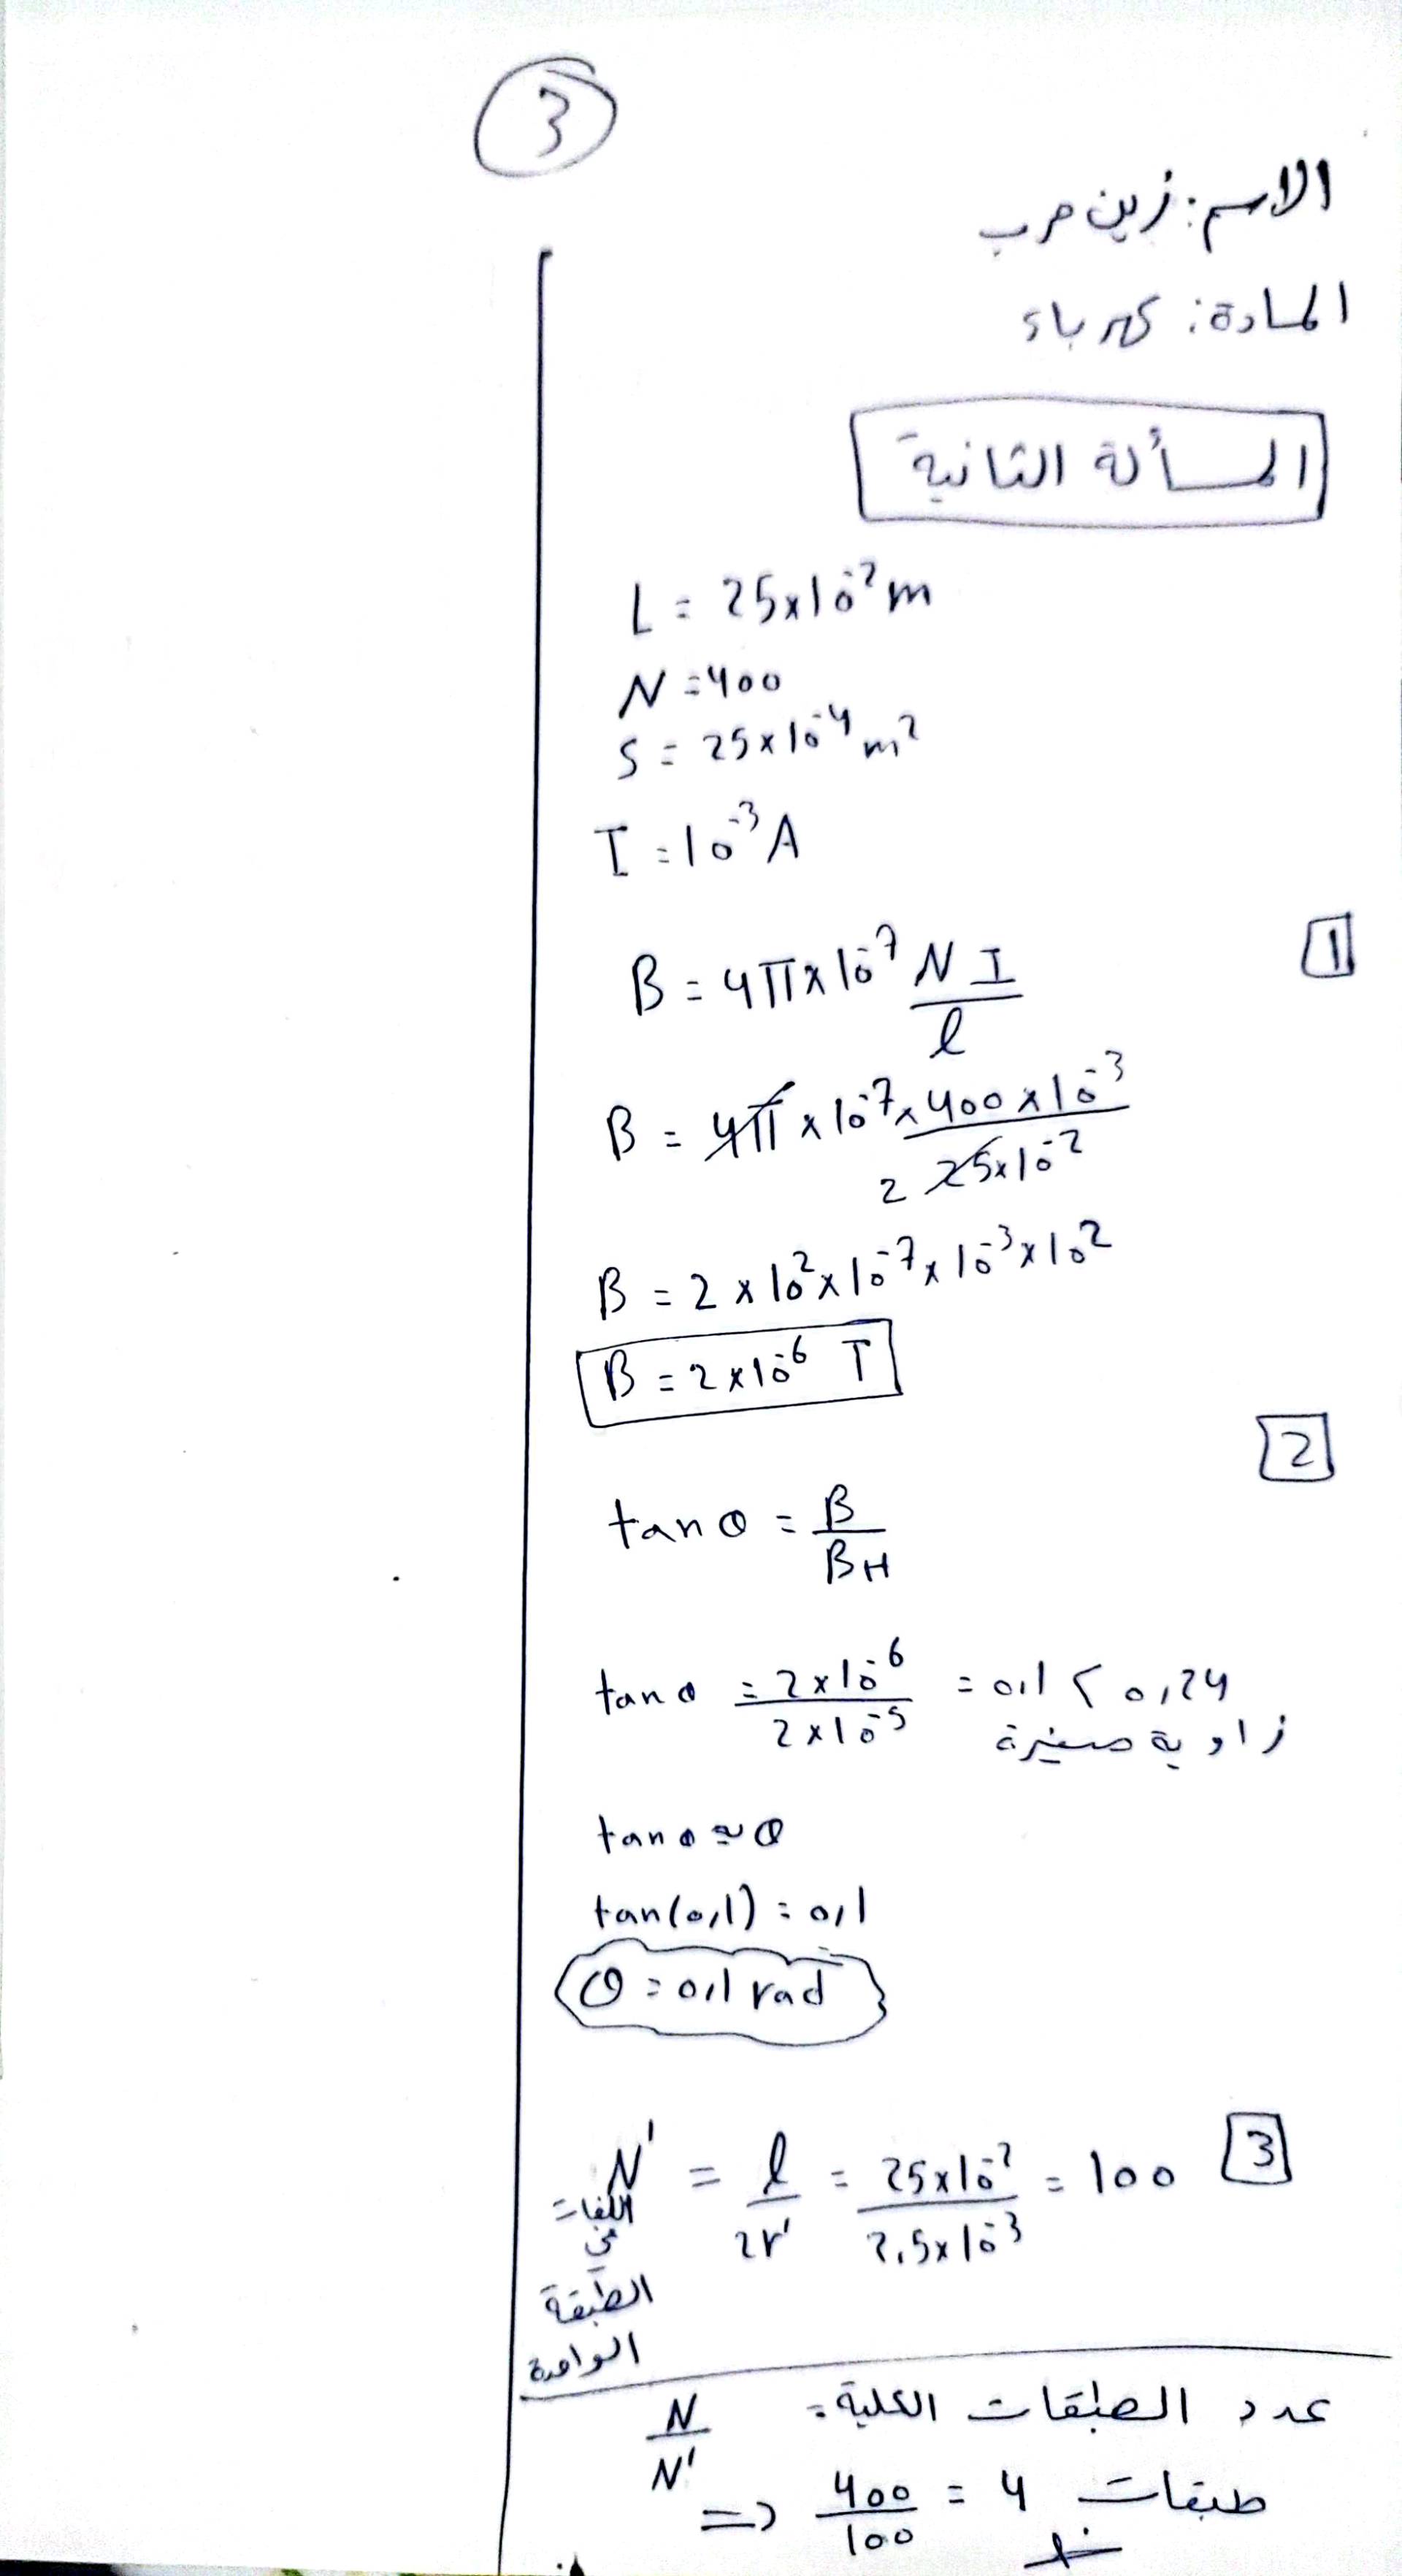 3
الاسم: زين حرب
المادة: كهرباء
المسألة الثانية
L = 25×10⁻² m
N = 400
S = 25×10⁻⁴ m²
I = 10⁻³ A
1
B = 4π×10⁻⁷ N I / l
B = 4π × 10⁻⁷ × 400 × 10⁻³ / 25×10⁻² 2
B = 2 × 10² × 10⁻⁷ × 10⁻³ × 10²
B = 2 × 10⁻⁶ T
2
tan θ = B / BH
tan θ = 2×10⁻⁶ / 2×10⁻⁵ = 0,1 < 0,24
زاوية صغيرة
tan θ ≈ θ
tan(0,1) = 0,1
θ = 0,1 rad
3
N' = l / 2r' = 25×10⁻² / 2,5×10⁻³ = 100
اللفات
في
الطبقة
الواحدة
عدد الطبقات الكلية = N / N'
=> 400 / 100 = 4 طبقات